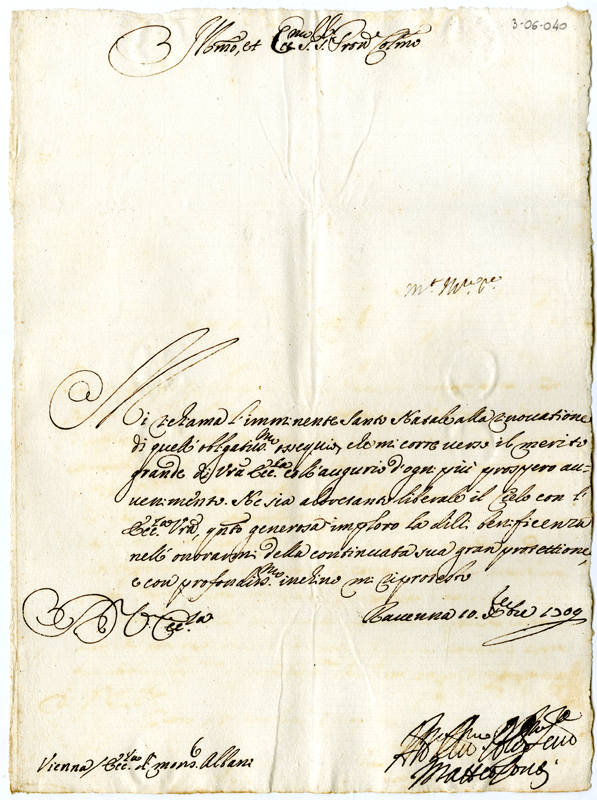 3-06-040
Illmo, et Eccmo Sig.r S. Pron.e Colmo
Mi richama l'imminente Santo Natale alla rinovatione
di quell'obligatiss.mo ossequio, che mi corre verso il merito
grande di Vra Ecc.za coll'augurio d'ogni più prospero au-
uenimento. Ne sia altretanto liberale il Cielo con l'
Ecc.za Vra, qnto generosa imploro la di lei beneficenza
nell'onorarmi della continuata sua gran protettione,
e con profondiss.mo inchino mi riprotesto
D V Ecc.za
Rauenna 10 Xbre 1709
Vienna / Ecc.za di Mons. Albani